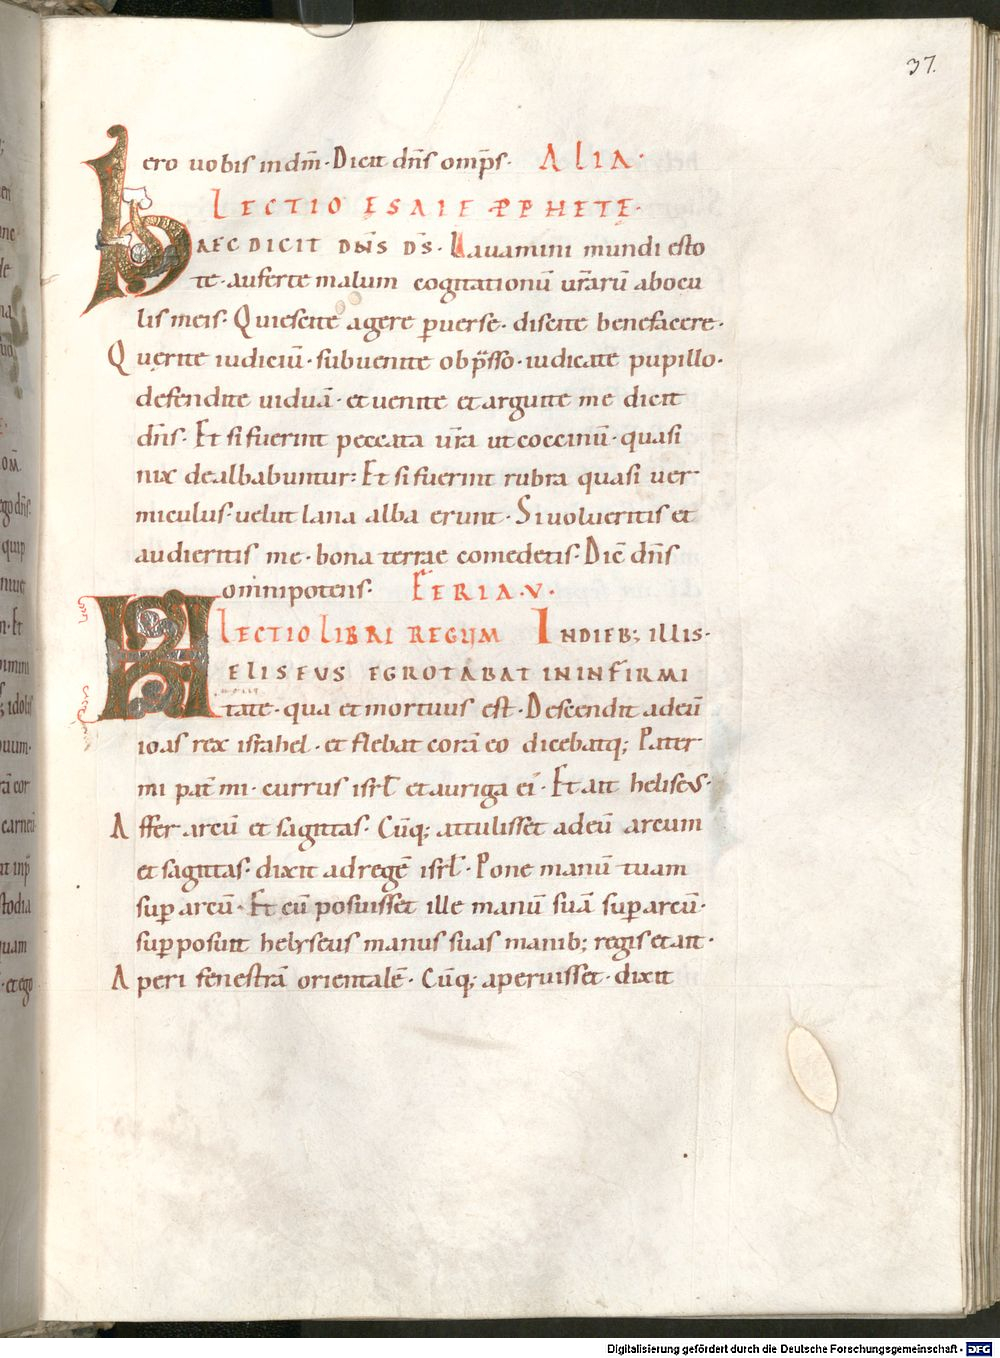 37.
ero uobis in dm̄ · Dicit dn̄s omp̄s · ALIA ·
LECTIO ESAIE PPHETE ·
HAEC DICIT DN̄S DS̄ · Lauamini mundi esto
te · auferte malum cogitationū ur̄arū ab ocu
lis meis · Quiescite agere ꝑuerse · discite benefacere ·
Querite iudiciū · subuenite obp̄sso · iudicate pupillo ·
defendite uiduā · et uenite et arguite me dicit
dn̄s · Et si fuerint peccata ur̄a ut coccinū · quasi
nix dealbabuntur: Et si fuerint rubra quasi uer
miculus · uelut lana alba erunt · Si uolueritis et
audieritis me · bona terrae comedetis · Dic̄ dn̄s
omnipotens · FERIA · V ·
LECTIO LIBRI REGUM IN DIEB; ILLIS ·
ELISEVS EGROTABAT IN INFIRMI
tate · qua et mortuus est · Descendit ad eū
ioas rex israhel · et flebat corā eo dicebatq; Pater
mi pat̄ mi · currus isrl̄ et auriga ei · Et ait heliseus ·
Affer arcū et sagittas · Cūq; attulisset ad eū arcum
et sagittas · dixit ad regē isrl̄ · Pone manū tuam
suꝑ arcū · Et cū posuisset ille manū suā suꝑ arcū ·
suꝑposuit helyseus manus suas manib; regis et ait ·
Aperi fenestrā orientalē · Cūq; aperuisset · dixit
Digitalisierung gefördert durch die Deutsche Forschungsgemeinschaft - DFG